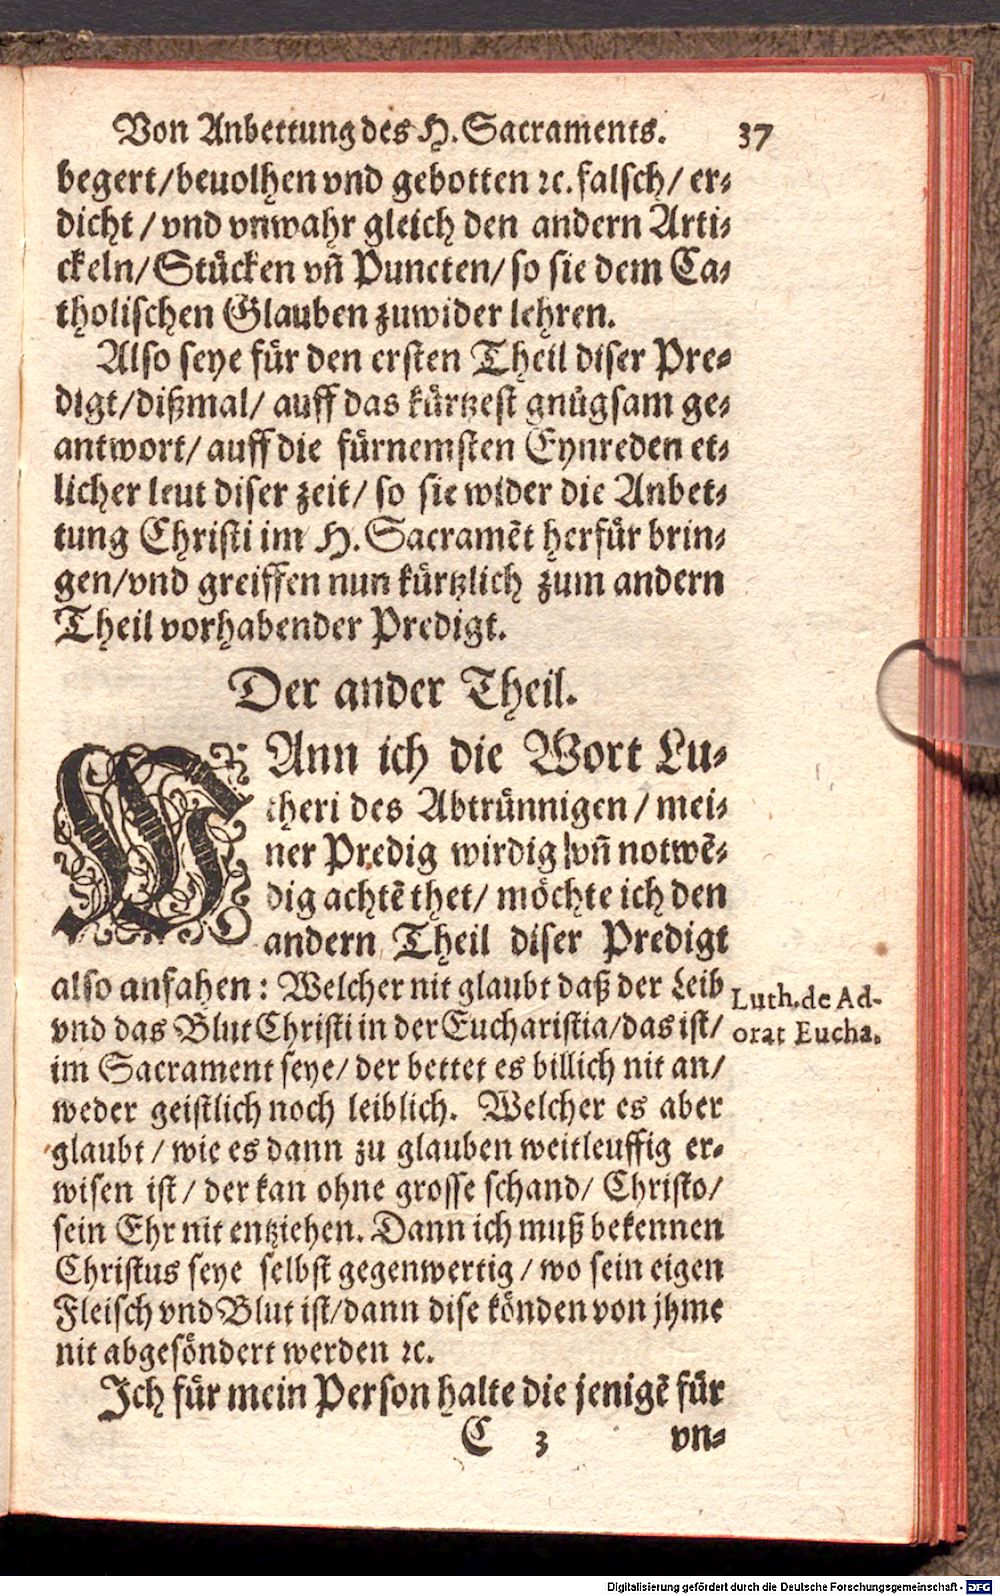 Von Anbettung des H. Sacraments. 37
begert/beuolhen vnd gebotten ꝛc. falsch/ er⸗
dicht / vnd vnwahr gleich den andern Arti⸗
ckeln/ Stücken vñ Puncten/ so sie dem Ca⸗
tholischen Glauben zuwider lehren.
Also seye für den ersten Theil diser Pre⸗
digt/dißmal/ auff das kürtzest gnügsam ge⸗
antwort/ auff die fürnemsten Eynreden et⸗
licher leut diser zeit/ so sie wider die Anbet⸗
tung Christi im H. Sacramēt herfür brin⸗
gen/vnd greiffen nun kürtzlich zum andern
Theil vorhabender Predigt.
Der ander Theil.
WAnn ich die Wort Lu⸗
theri des Abtrünnigen / mei⸗
ner Predig wirdig vñ notwē⸗
dig achtē thet/ möchte ich den
andern Theil diser Predigt
also anfahen : Welcher nit glaubt daß der Leib
vnd das Blut Christi in der Eucharistia/das ist/
im Sacrament seye/ der bettet es billich nit an/
weder geistlich noch leiblich. Welcher es aber
glaubt / wie es dann zu glauben weitleuffig er⸗
wisen ist/ der kan ohne grosse schand/ Christo/
sein Ehr nit entziehen. Dann ich muß bekennen
Christus seye selbst gegenwertig / wo sein eigen
Fleisch vnd Blut ist/dann dise könden von jhme
nit abgesöndert werden ꝛc.
Luth. de Ad-
orat Eucha.
Ich für mein Person halte die jenigē für
C 3 vn⸗
Digitalisierung gefördert durch die Deutsche Forschungsgemeinschaft - DFG